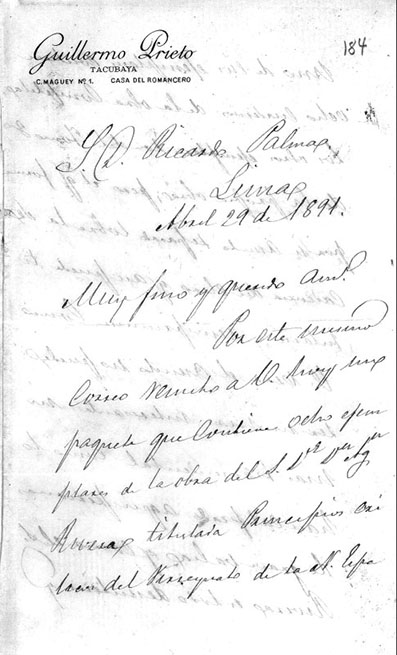 Guillermo Prieto
TACUBAYA
C. MAGUEY Nº 1. CASA DEL ROMANCERO
184
S. D. Ricardo Palma
Lima
Abril 29 de 1891.
Muy fino y querido am.
Por este mismo
Correo remito a U. hoy un
paquete que contiene ocho ejem
plares de la obra del S.
Rivera titulada Principios
del Virreynato de la N. Espa